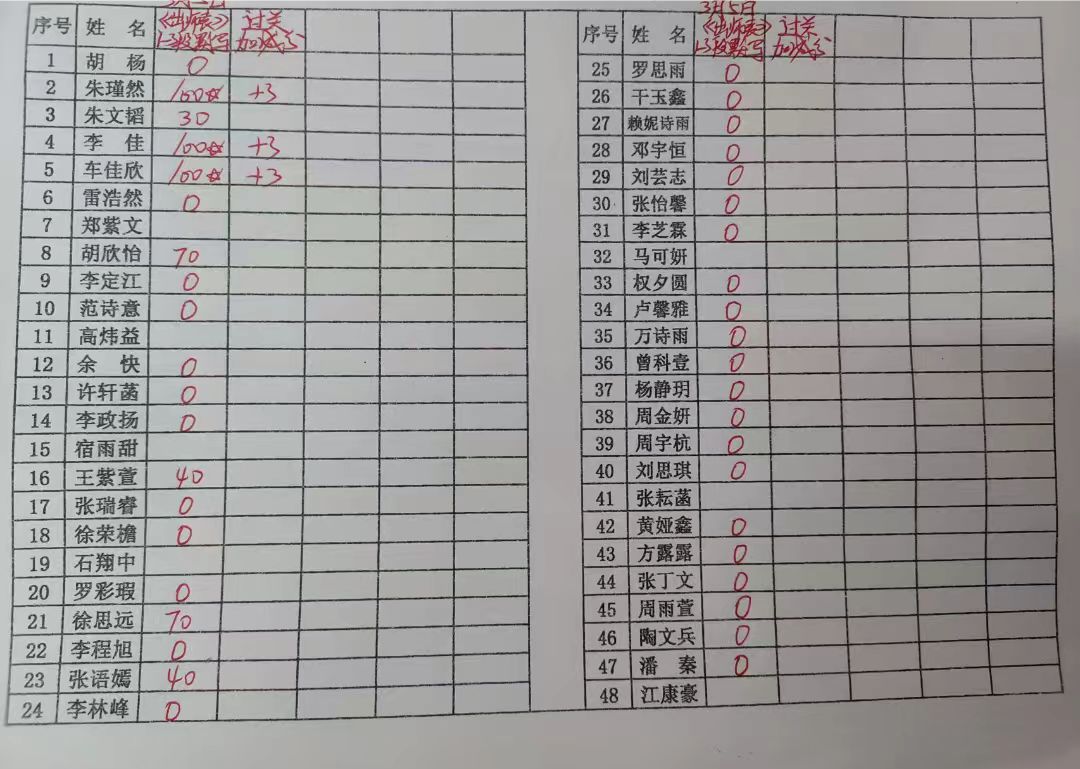 序号 姓 名 3月5日《出师表》1-3段默写 过关加减分
1 胡 杨 0
2 朱瑾然 100☆ +3
3 朱文韬 30
4 李 佳 100☆ +3
5 车佳欣 100☆ +3
6 雷浩然 0
7 郑紫文
8 胡欣怡 70
9 李定江 0
10 范诗意 0
11 高炜益
12 余 快 0
13 许轩菡 0
14 李政扬 0
15 宿雨甜
16 王紫萱 40
17 张瑞睿 0
18 徐荣檐 0
19 石翔中
20 罗彩瑕 0
21 徐思远 70
22 李程旭 0
23 张语嫣 40
24 李林峰 0
序号 姓 名 3月5日《出师表》1-3段默写 过关加减分
25 罗思雨 0
26 干玉鑫 0
27 赖妮诗雨 0
28 邓宇恒 0
29 刘芸志 0
30 张怡馨 0
31 李芝霖 0
32 马可妍
33 权夕圆 0
34 卢馨雅 0
35 万诗雨 0
36 曾科壹 0
37 杨静玥 0
38 周金妍 0
39 周宇杭 0
40 刘思琪 0
41 张耘菡
42 黄娅鑫 0
43 方露露 0
44 张丁文 0
45 周雨萱 0
46 陶文兵 0
47 潘 秦 0
48 江康豪